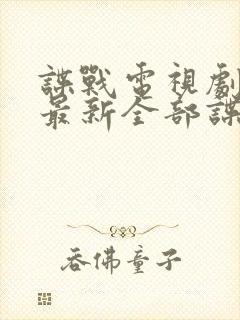 諜戰電視劇
最新全部諜
吞佛童子